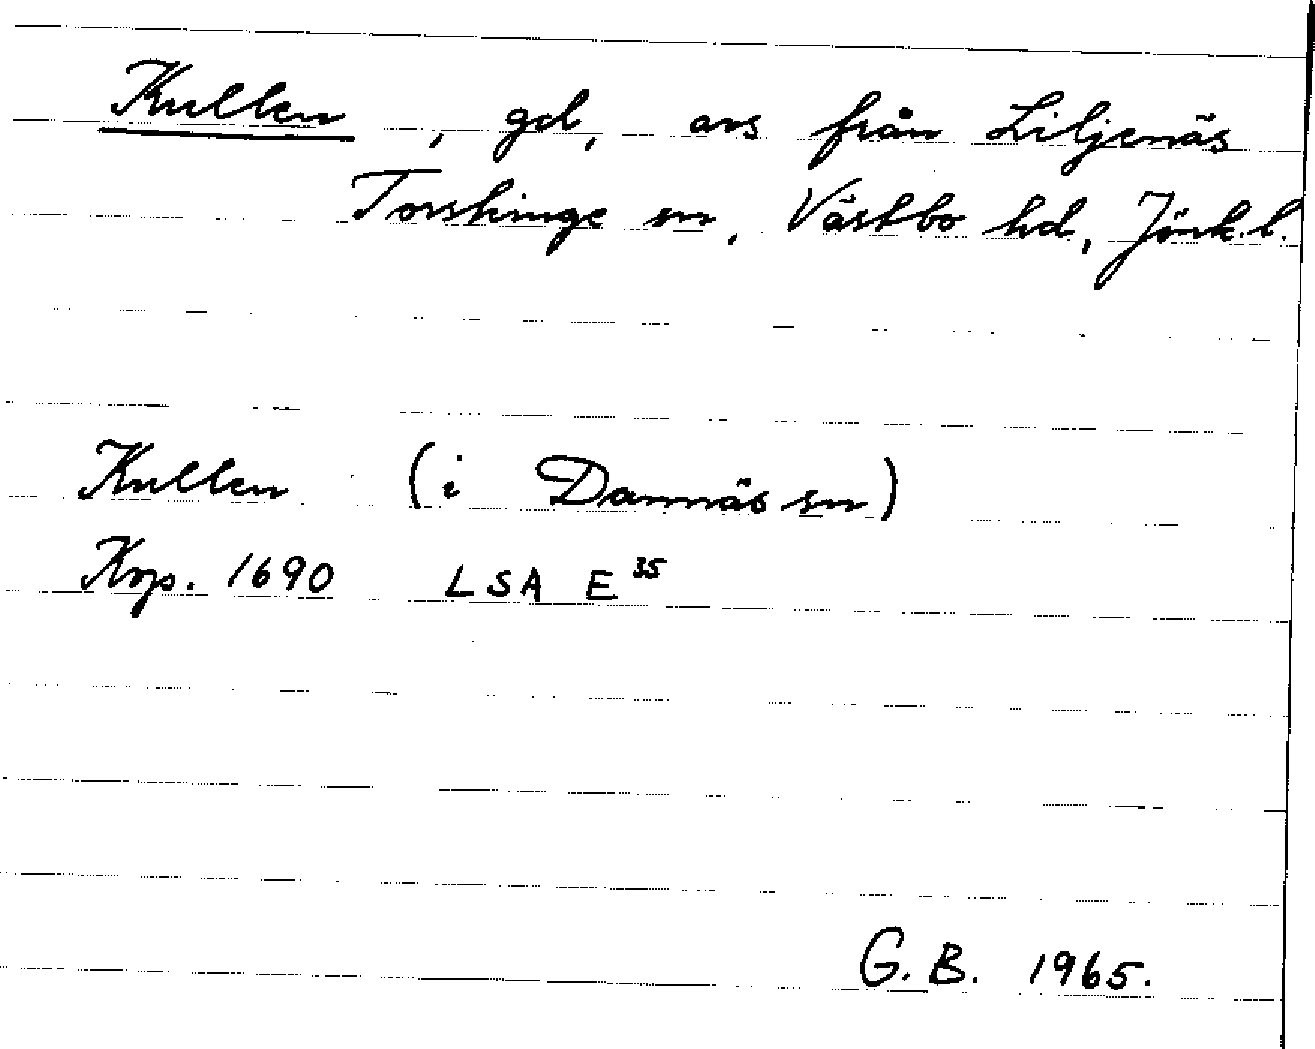 Kullen, gd, avs från Liljenäs
Torskinge sn, Västbo hd, Jönk. l.
Kullen (i Dannäs sn)
Kop. 1690 LSA E 35
G. B. 1965.